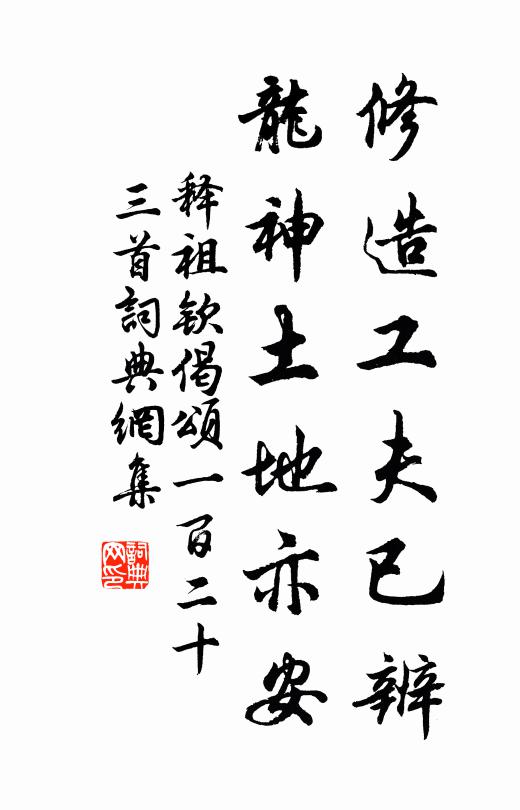 修造工夫已辨
龍神土地亦安
释祖欽偈頌一百二十
三首詞典網集
詞典
网印